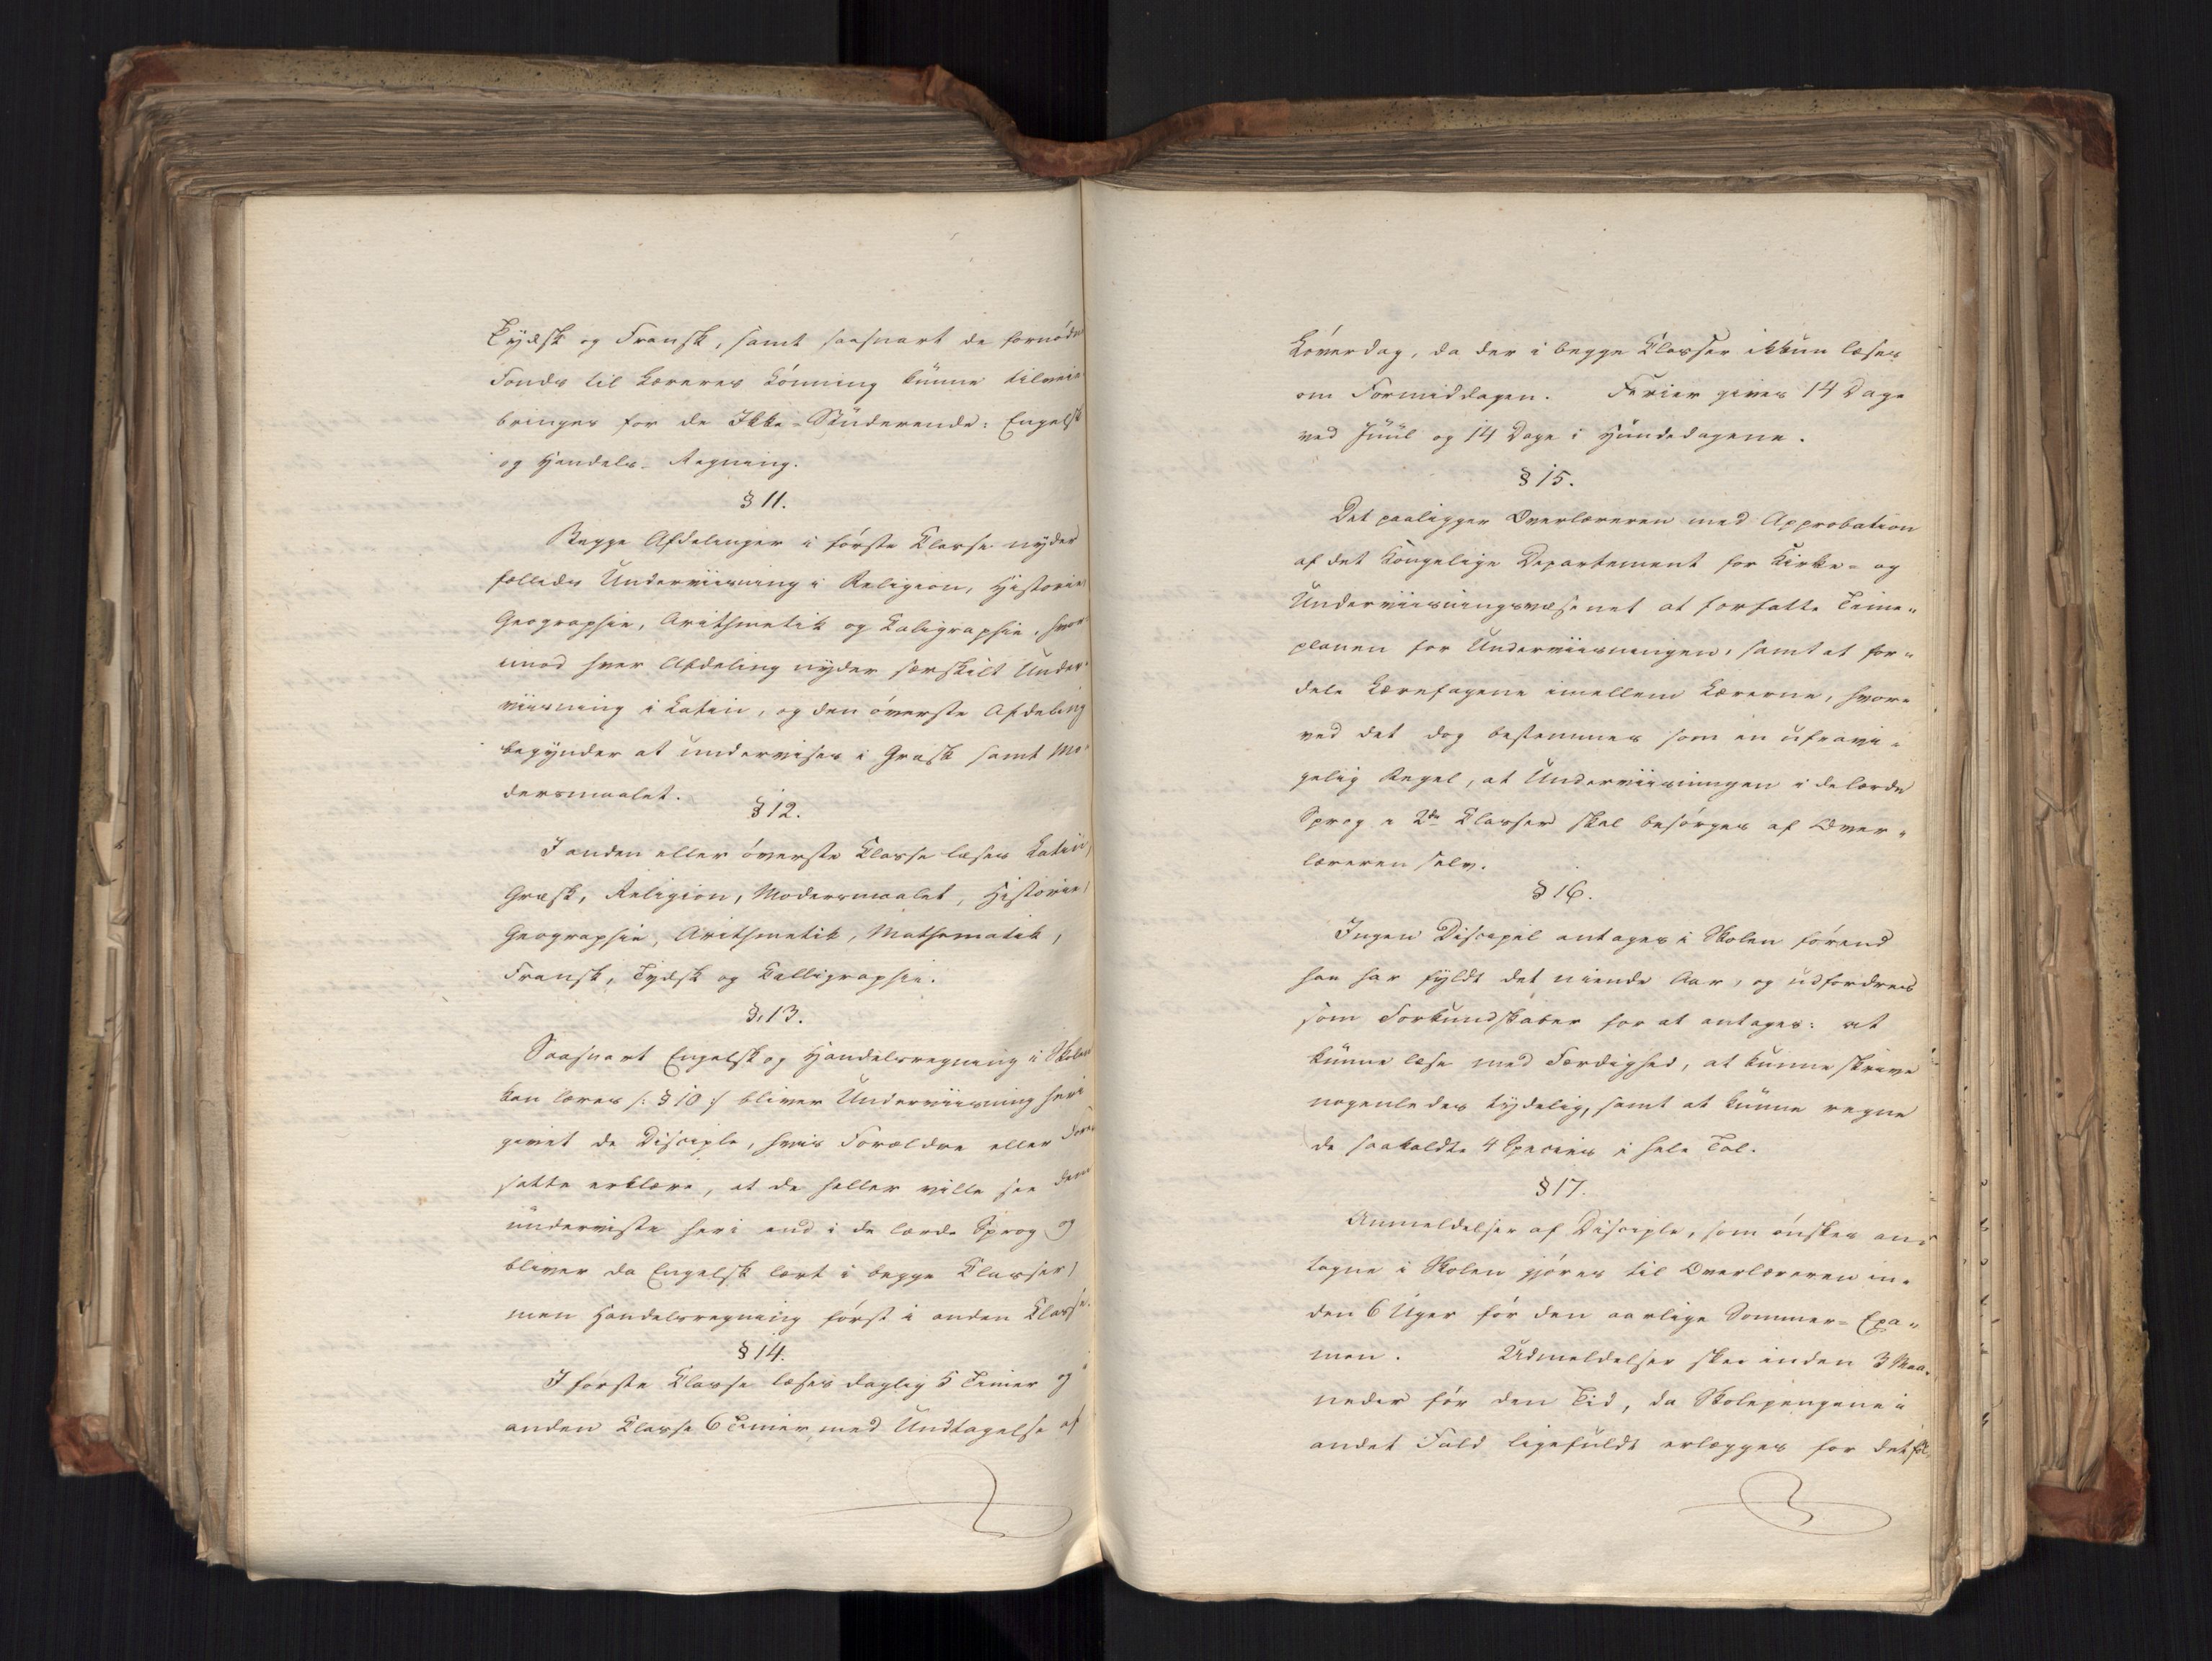 Tydsk og Fransk, samt saasnart de fornødne
Fonds til Læreres Lønning kunne tilveie-
bringes for de Ikke-Studerende: Engelsk
og Handels-Regning.
§ 11.
Begge Afdelinger i første Classe nyder
fælleds Underviisning i Religion, Historie,
Geographie, Arithmetik og Caligraphie, hvor-
imod hver Afdeling nyder særskilt Under-
viisning i Latin, og den øverste Afdeling
begynder at undervises i Græsk samt Mo-
dersmaalet.
§ 12.
I anden eller øverste Classe læses Latin,
Græsk, Religion, Modersmaalet, Historie,
Geographie, Arithmetik, Mathematik,
Fransk, Tydsk og Calligraphie.
§. 13.
Saasnart Engelsk og Handelsregning i Skolen
kan læres /: § 10 :/ bliver Underviisning heri
givet de Disciple, hvis Forældre eller Fore-
satte erklære, at de heller ville see dem
underviste heri end i de lærde Sprog og
bliver da Engelsk lært i begge Classer,
men Handelsregning først i anden Classe.
§ 14.
I første Classe læses daglig 5 Timer og i
anden Classe 6 Timer, med Undtagelse af
Løverdag, da der i begge Classer ikkun læses
om Formiddagen. Ferier gives 14 Dage
ved Juul og 14 Dage i Hundedagene.
§ 15.
Det paaligger Overlæreren med Approbation
af det Kongelige Departement for Kirke- og
Underviisningsvæsenet at forfatte Time-
planen for Underviisningen, samt at for-
dele Lærefagene imellem Lærerne, hvor-
ved det dog bestemmes som en ufravi-
gelig Regel, at Underviisningen i de lærde
Sprog i 2den Classe skal besørges af Over-
læreren selv.
§ 16.
Ingen Discipel antages i Skolen førend
han har fyldt det niende Aar, og udfordres
som Forkundskaber for at antages: at
kunne læse med Færdighed, at kunne skrive
nogenledes tydelig, samt at kunne regne
de saakaldte 4 Species i hele Tal.
§ 17.
Anmeldelser af Disciple, som ønskes an-
tagne i Skolen gjøres til Overlæreren in-
den 6 Uger før den aarlige Sommer-Exa-
men. Udmeldelser skee inden 3 Maa-
neder før den Tid, da Skolepengene i
andet Fald ligefuldt erlægges for det føl-